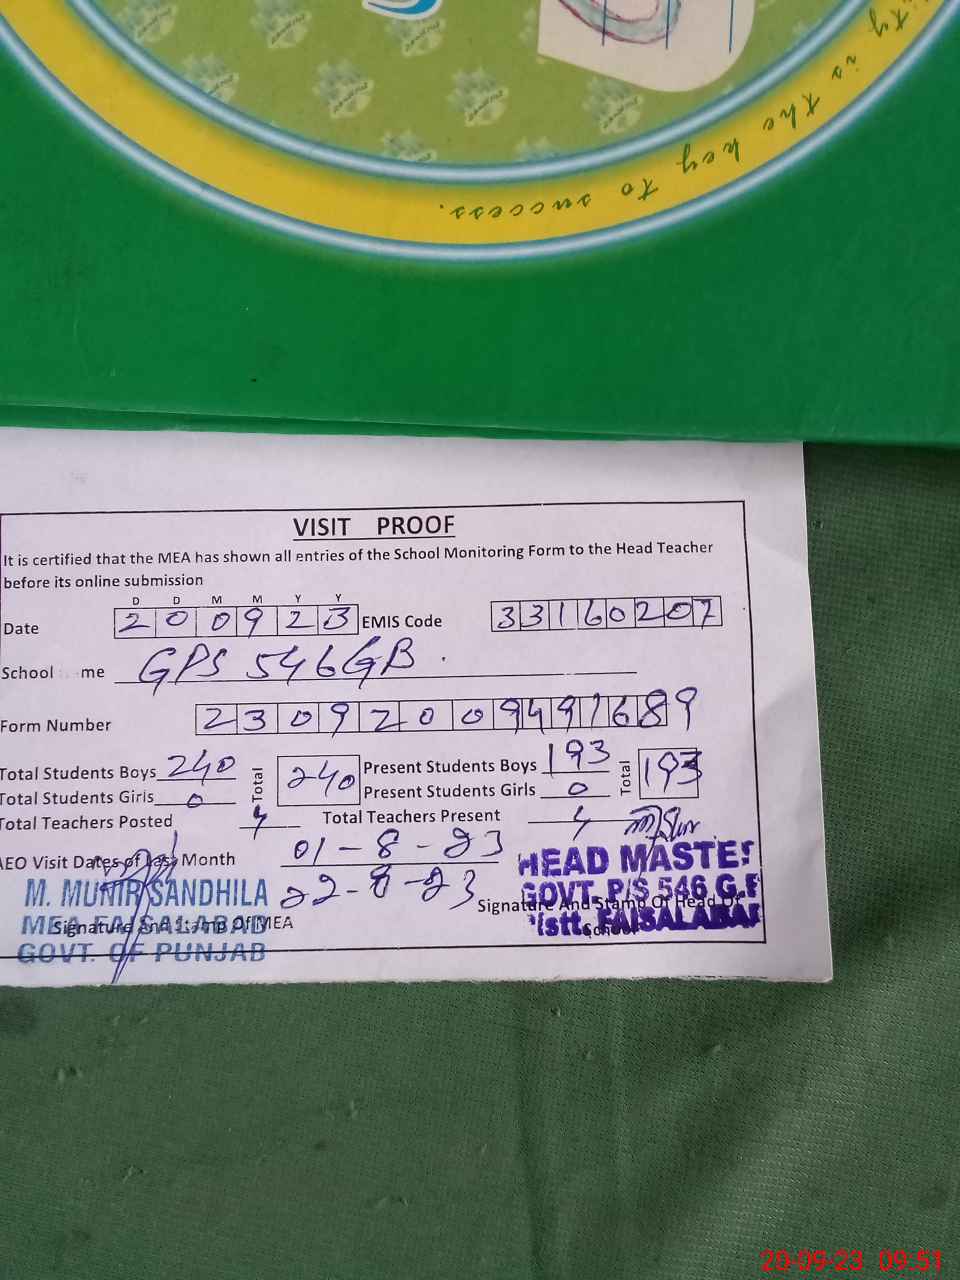 ty is the key to success.
VISIT PROOF
It is certified that the MEA has shown all entries of the School Monitoring Form to the Head Teacher
before its online submission
D D M M Y Y
Date 200923 EMIS Code 33160207
School me GPS 546GB.
Form Number 23092009491689
Total Students Boys 240 Total 240 Present Students Boys 193 Total 193
Total Students Girls 0 Present Students Girls 0
Total Teachers Posted 4 Total Teachers Present 4
AEO Visit Dates of Last Month 01-8-23
22-8-23
M. MUNIR SANDHILA
MEA FAISALABAD
GOVT. OF PUNJAB
Signature And Stamp Of MEA
HEAD MASTER
GOVT. P/S 546 G.B
Distt. FAISALABAD
Signature And Stamp Of Head Of
School
20-09-23 09:51